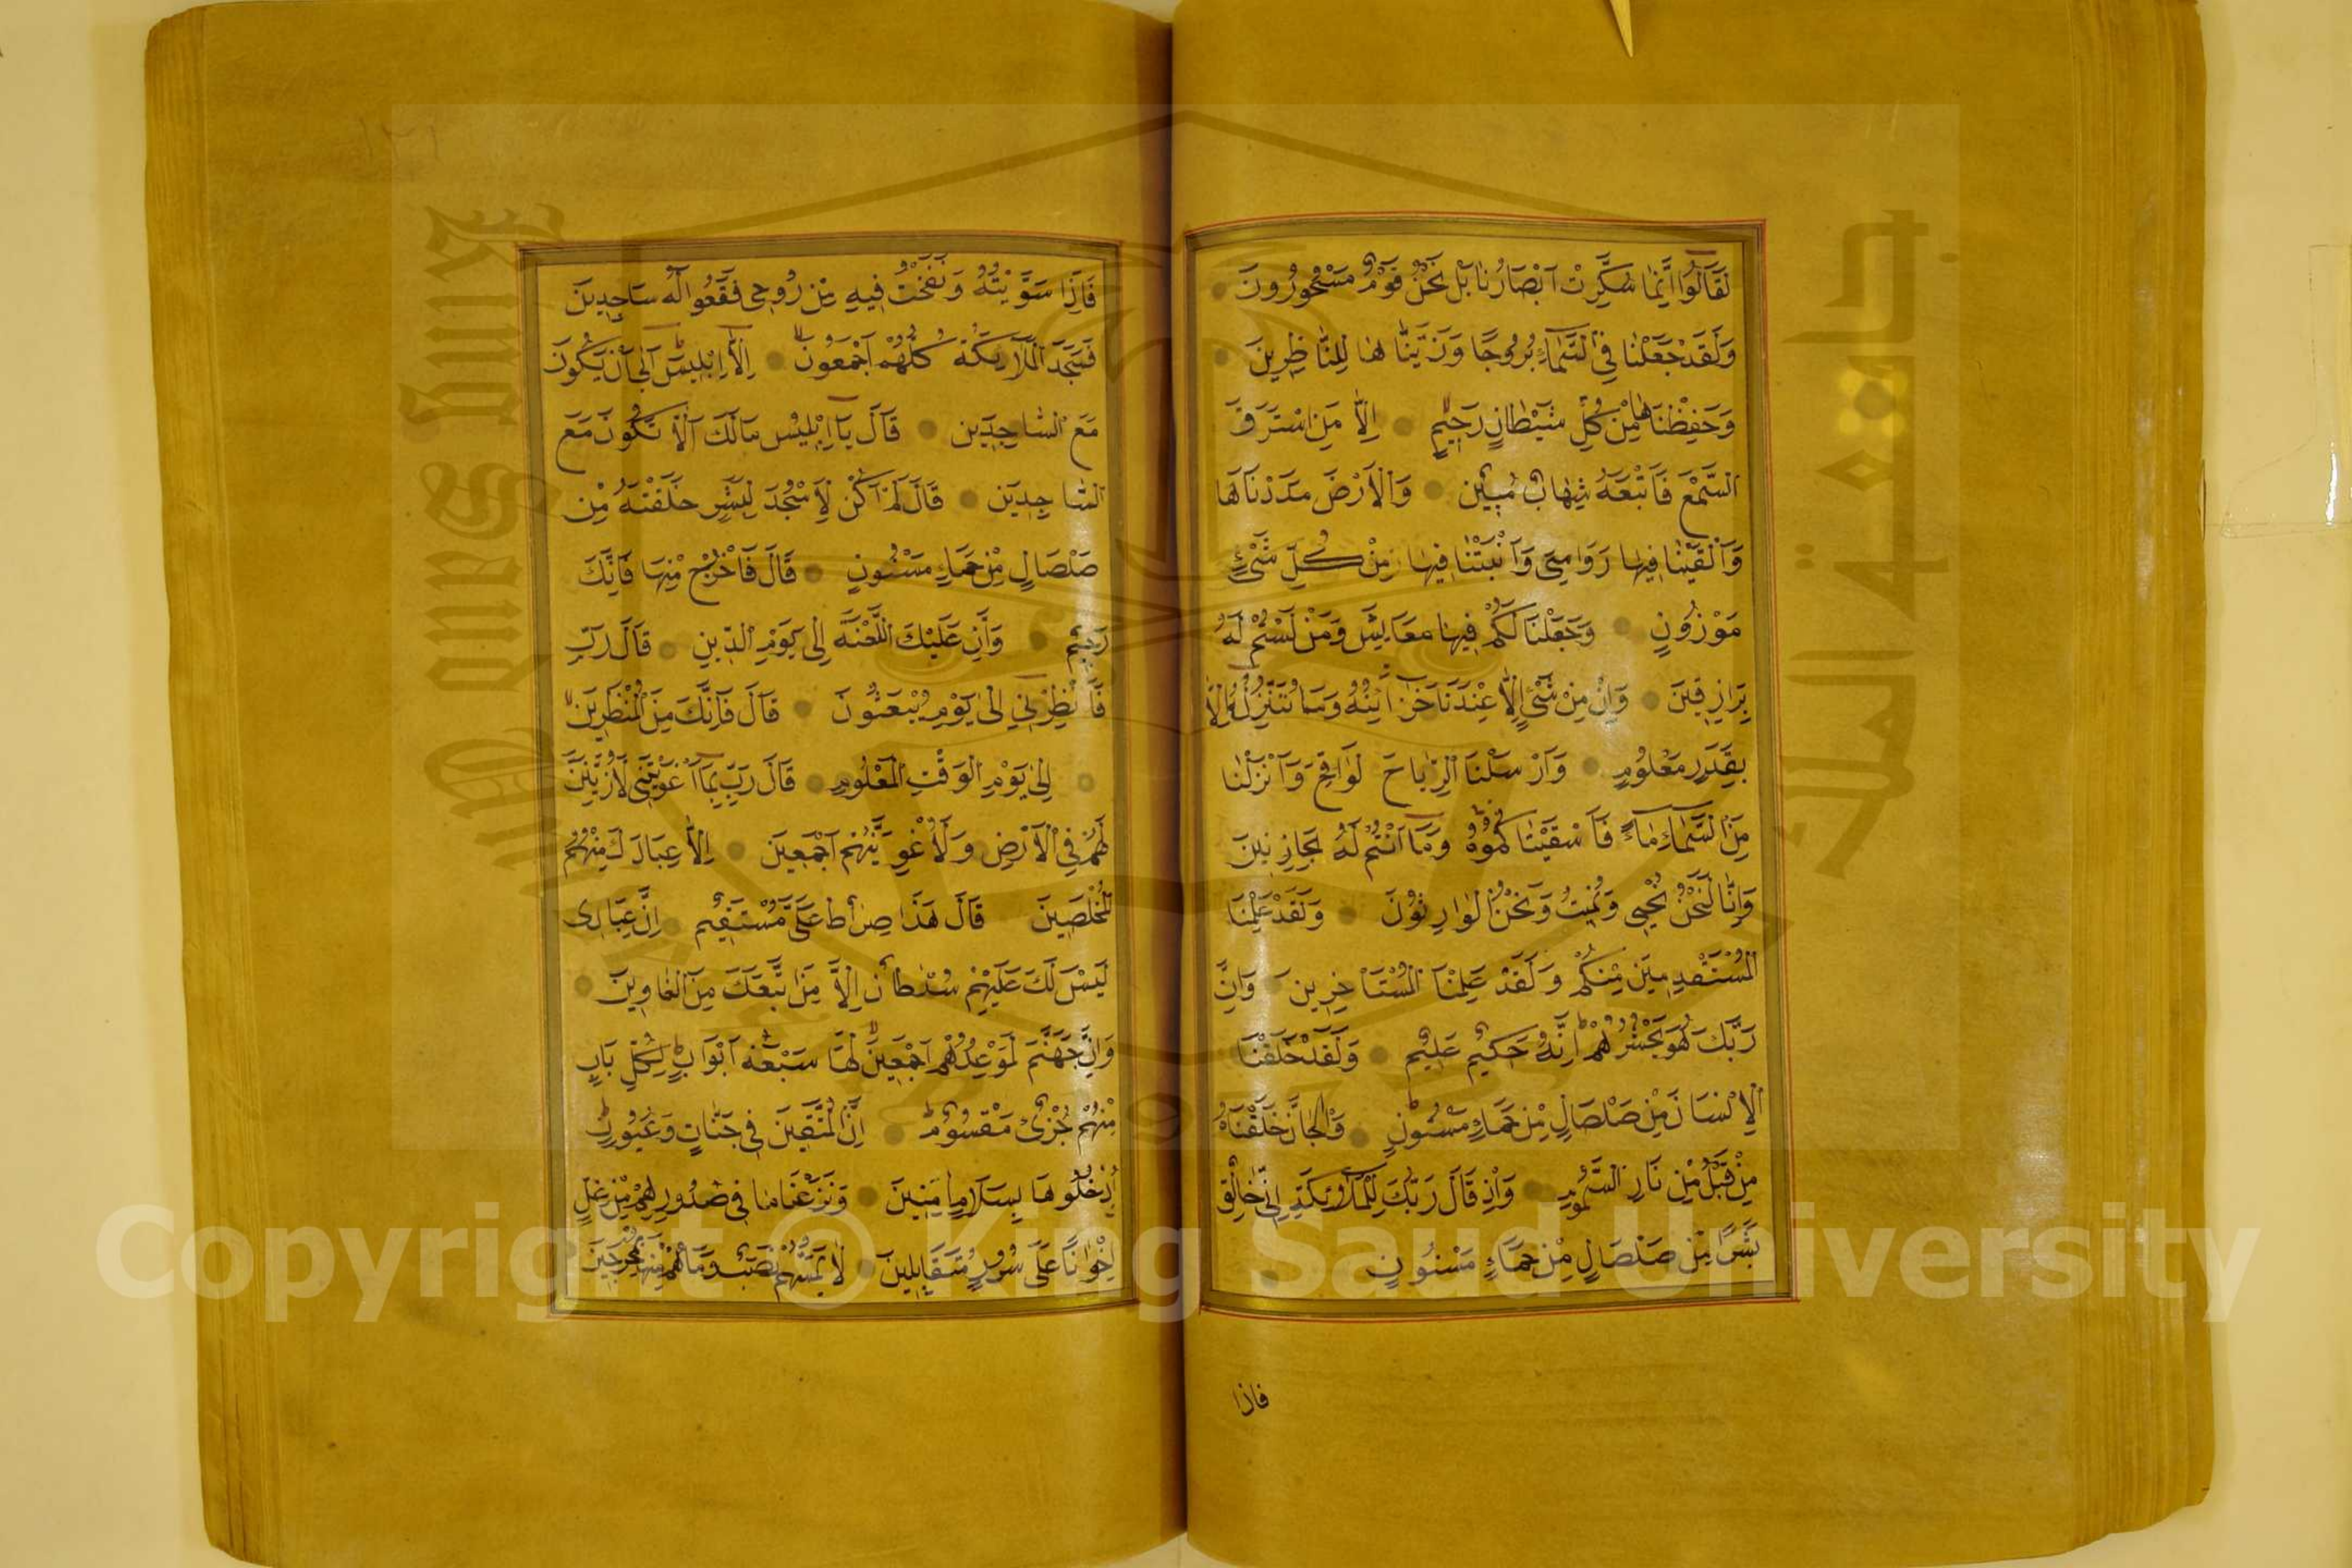 لَقَالُوا اِنَّمَا سُكِّرَتْ اَبْصَارُنَا بَلْ نَحْنُ قَوْمٌ مَسْحُورُونَ
وَلَقَدْ جَعَلْنَا فِي السَّمَاءِ بُرُوجًا وَزَيَّنَّاهَا لِلنَّاظِرِينَ
وَحَفِظْنَاهَا مِنْ كُلِّ شَيْطَانٍ رَجِيمٍ اِلَّا مَنِ اسْتَرَقَ
السَّمْعَ فَاَتْبَعَهُ شِهَابٌ مُبِينٌ وَالْاَرْضَ مَدَدْنَاهَا
وَاَلْقَيْنَا فِيهَا رَوَاسِىَ وَاَنْبَتْنَا فِيهَا مِنْ كُلِّ شَىْءٍ
مَوْزُونٍ وَجَعَلْنَا لَكُمْ فِيهَا مَعَايِشَ وَمَنْ لَسْتُمْ لَهُ
بِرَازِقِينَ وَاِنْ مِنْ شَىْءٍ اِلَّا عِنْدَنَا خَزَائِنُهُ وَمَا نُنَزِّلُهُ اِلَّا
بِقَدَرٍ مَعْلُومٍ وَاَرْسَلْنَا الرِّيَاحَ لَوَاقِحَ وَاَنْزَلْنَا
مِنَ السَّمَاءِ مَاءً فَاَسْقَيْنَاكُمُوهُ وَمَا اَنْتُمْ لَهُ بِخَازِنِينَ
وَاِنَّا لَنَحْنُ نُحْيِى وَنُمِيتُ وَنَحْنُ الْوَارِثُونَ وَلَقَدْ عَلِمْنَا
الْمُسْتَقْدِمِينَ مِنْكُمْ وَلَقَدْ عَلِمْنَا الْمُسْتَاْخِرِينَ وَاِنَّ
رَبَّكَ هُوَ يَحْشُرُهُمْ اِنَّهُ حَكِيمٌ عَلِيمٌ وَلَقَدْ خَلَقْنَا
الْاِنْسَانَ مِنْ صَلْصَالٍ مِنْ حَمَاءٍ مَسْنُونٍ وَالْجَانَّ خَلَقْنَاهُ
مِنْ قَبْلُ مِنْ نَارِ السَّمُومِ وَاِذْ قَالَ رَبُّكَ لِلْمَلَائِكَةِ اِنِّى خَالِقٌ
بَشَرًا مِنْ صَلْصَالٍ مِنْ حَمَاءٍ مَسْنُونٍ
فاذا
فَاِذَا سَوَّيْتُهُ وَنَفَخْتُ فِيهِ مِنْ رُوحِى فَقَعُوا لَهُ سَاجِدِينَ
فَسَجَدَ الْمَلَائِكَةُ كُلُّهُمْ اَجْمَعُونَ اِلَّا اِبْلِيسَ اَبٰى اَنْ يَكُونَ
مَعَ السَّاجِدِينَ قَالَ يَا اِبْلِيسُ مَالَكَ اَلَّا تَكُونَ مَعَ
السَّاجِدِينَ قَالَ لَمْ اَكُنْ لِاَسْجُدَ لِبَشَرٍ خَلَقْتَهُ مِنْ
صَلْصَالٍ مِنْ حَمَاءٍ مَسْنُونٍ قَالَ فَاخْرُجْ مِنْهَا فَاِنَّكَ
رَجِيمٌ وَاِنَّ عَلَيْكَ اللَّعْنَةَ اِلٰى يَوْمِ الدِّينِ قَالَ رَبِّ
فَاَنْظِرْنِى اِلٰى يَوْمِ يُبْعَثُونَ قَالَ فَاِنَّكَ مِنَ الْمُنْظَرِينَ
اِلٰى يَوْمِ الْوَقْتِ الْمَعْلُومِ قَالَ رَبِّ بِمَا اَغْوَيْتَنِى لَاُزَيِّنَنَّ
لَهُمْ فِى الْاَرْضِ وَلَاُغْوِيَنَّهُمْ اَجْمَعِينَ اِلَّا عِبَادَكَ مِنْهُمُ
الْمُخْلَصِينَ قَالَ هَذَا صِرَاطٌ عَلَىَّ مُسْتَقِيمٌ اِنَّ عِبَادِى
لَيْسَ لَكَ عَلَيْهِمْ سُلْطَانٌ اِلَّا مَنِ اتَّبَعَكَ مِنَ الْغَاوِينَ
وَاِنَّ جَهَنَّمَ لَمَوْعِدُهُمْ اَجْمَعِينَ لَهَا سَبْعَةُ اَبْوَابٍ لِكُلِّ بَابٍ
مِنْهُمْ جُزْءٌ مَقْسُومٌ اِنَّ الْمُتَّقِينَ فِى جَنَّاتٍ وَعُيُونٍ
اُدْخُلُوهَا بِسَلَامٍ اٰمِنِينَ وَنَزَعْنَا مَا فِى صُدُورِهِمْ مِنْ غِلٍّ
اِخْوَانًا عَلَى سُرُرٍ مُتَقَابِلِينَ لَا يَمَسُّهُمْ فِيهَا نَصَبٌ وَمَا هُمْ مِنْهَا بِمُخْرَجِينَ
Copyright © King Saud University
King Saud University
جامعة الملك